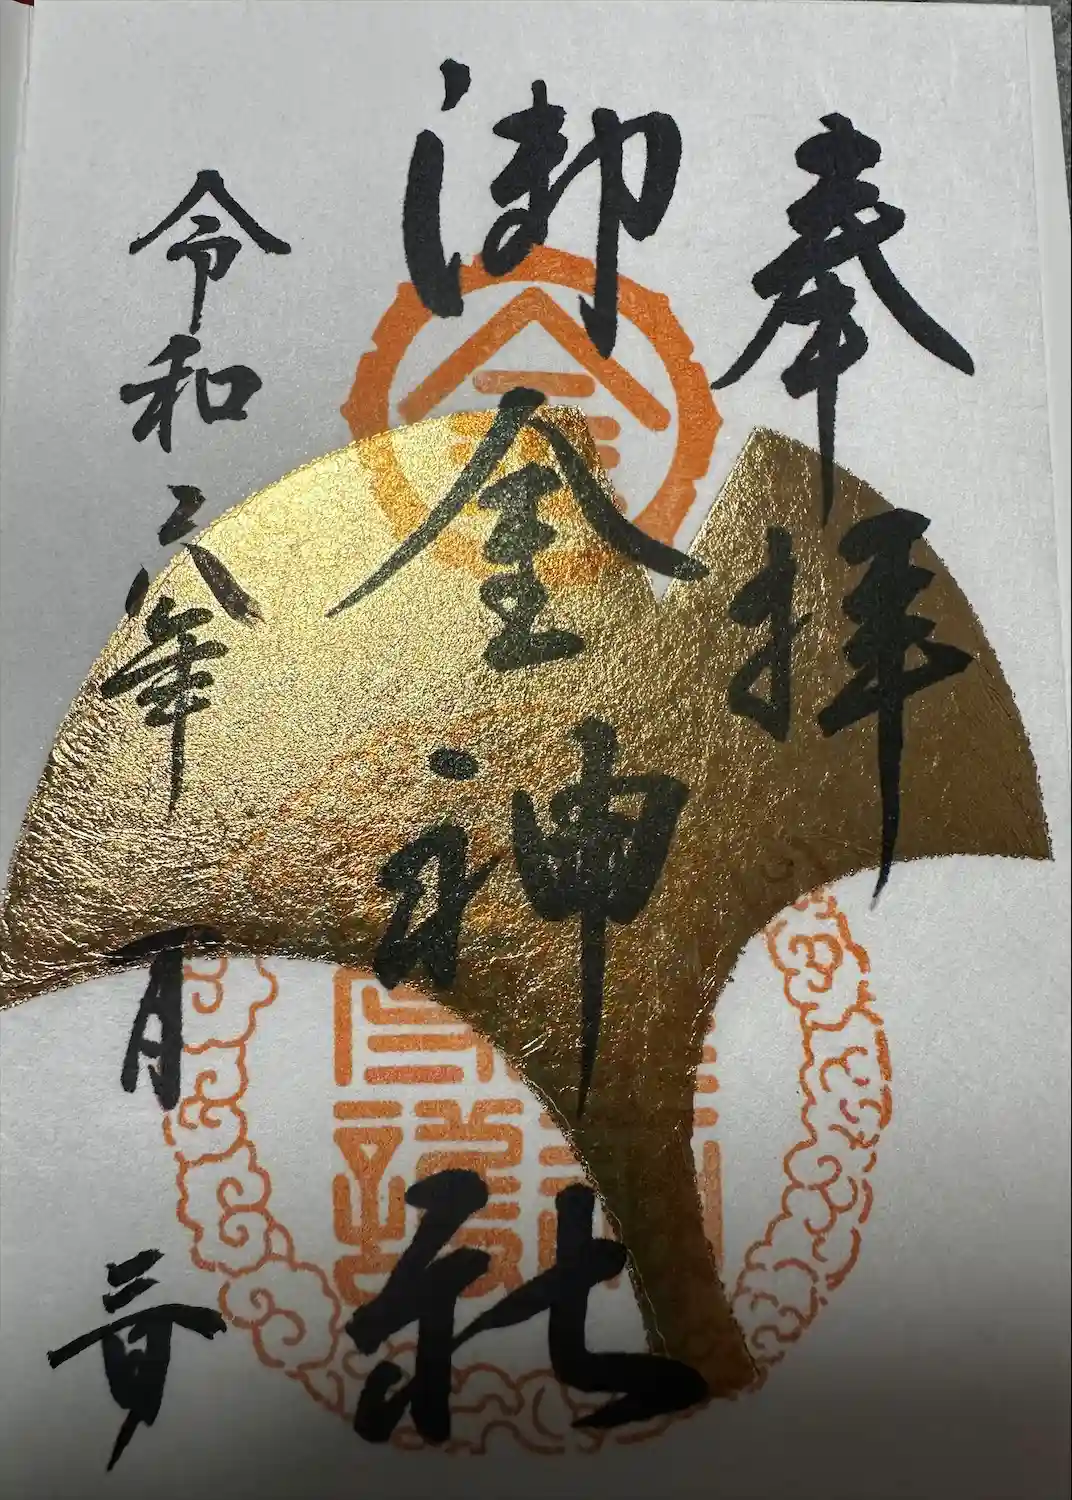 奉拝
御金神社
令和六年 月